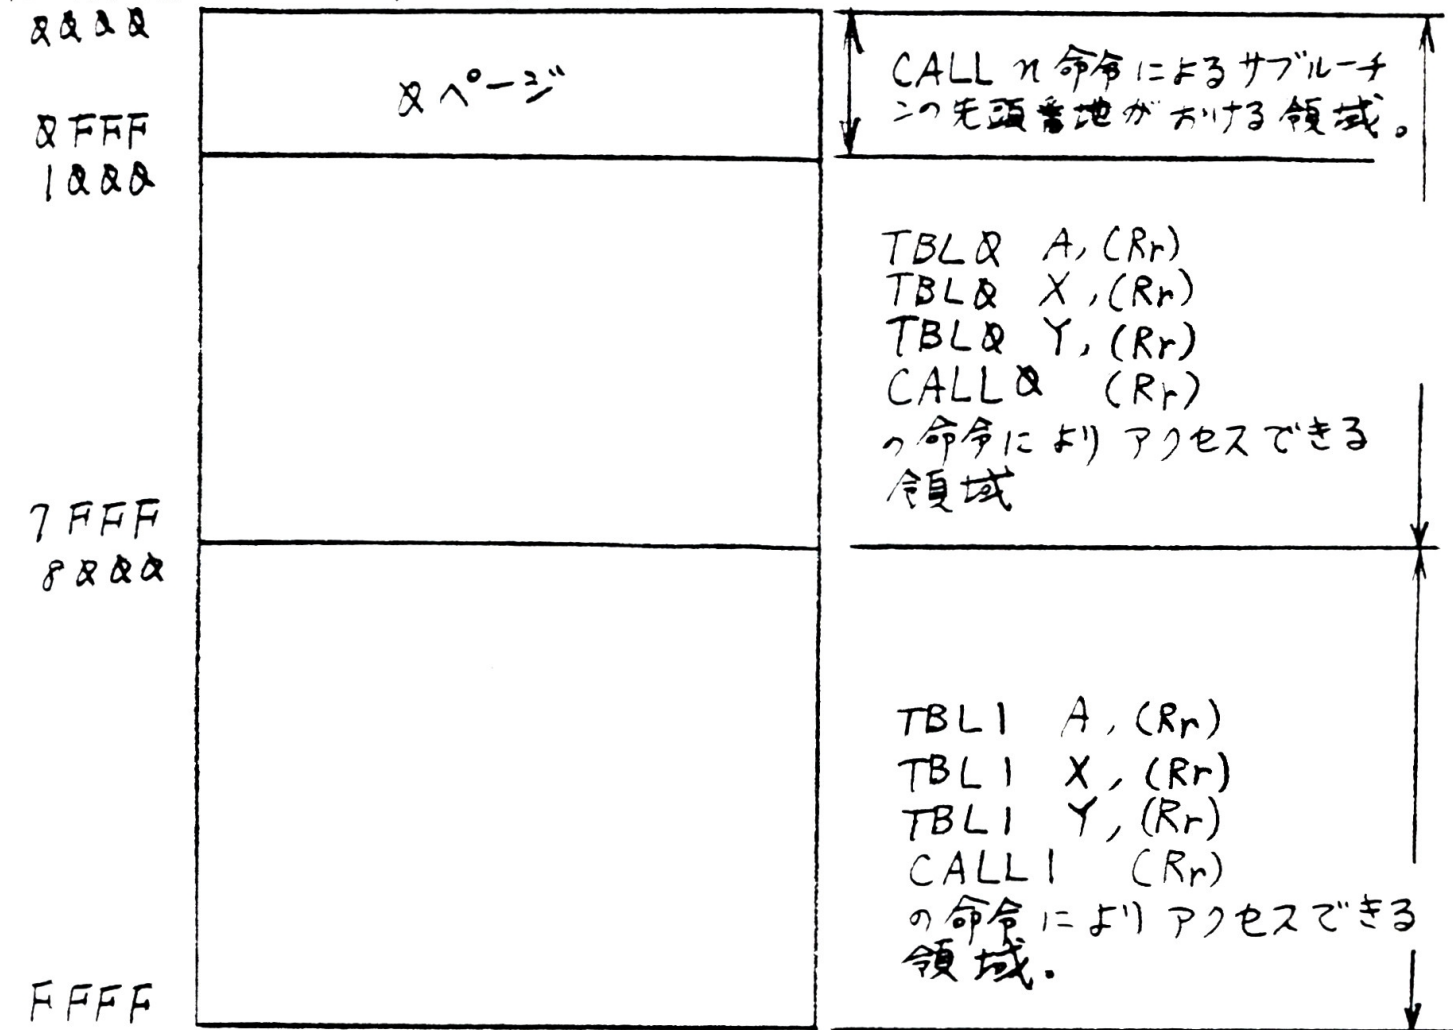 0000
0ページ
0FFF
1000
7FFF
8000
FFFF
CALL n 命令によるサブルーチ
ンの先頭番地がおける領域。
TBL0 A, (Rr)
TBL0 X, (Rr)
TBL0 Y, (Rr)
CALL0 (Rr)
の命令によりアクセスできる
領域
TBL1 A, (Rr)
TBL1 X, (Rr)
TBL1 Y, (Rr)
CALL1 (Rr)
の命令によりアクセスできる
領域.